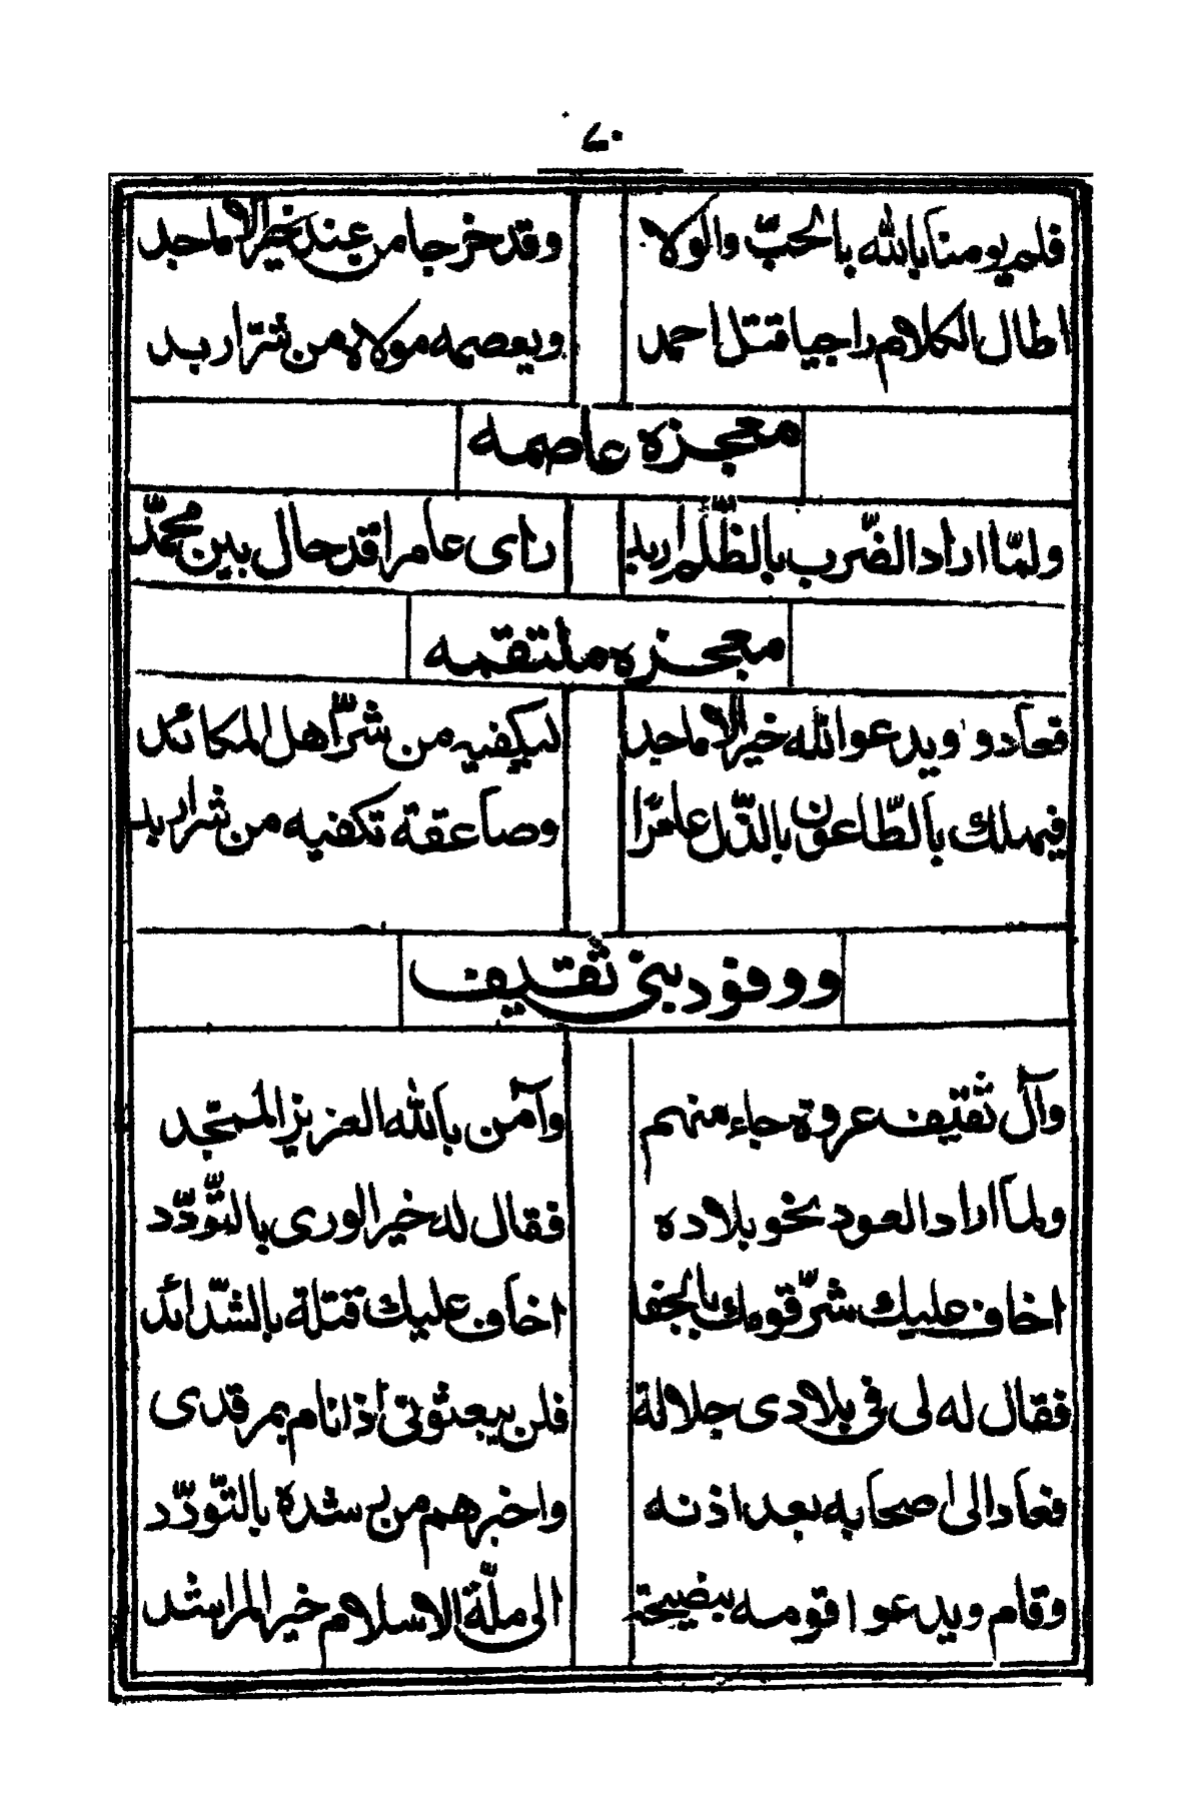 ٤٠
فلم يومنا بالله بالحبّ والولا وقد خرجا من عند خير الاماجد
اطال الكلام راجيا قتل احمد ويعصمه مولاه من شرّ اربد
معجزه عاصمه
ولمّا اراد الضّرب بالظّلم اربد رای عامرا قد حال بين محمّد
معجزه ملتقمه
فعاد ويدعو الله خير الاماجد ليكفيه من شرّ اهل المكائد
فيهلك بالطّاعون بالذّل عامرًا وصاعقة تكفيه من شر اربد
ووفود بنی ثقيف
وآل ثقيف عروة جاء منهم وآمن بالله العزيز الممجّد
ولمّا اراد العود نحو بلاده فقال له خير الوری بالتّودّد
اخاف عليك شرّ قومك بالجفا اخاف عليك قتلة بالشّدائد
فقال له لی فی بلادی جلالة فلن يبعثونی اذ انام بمرقدی
فعاد الی اصحابه بعد اذنه واخبرهم من بشده بالتّودّد
وقام ويدعوا قومه بنصيحة الی ملّة الاسلام خير المراشد